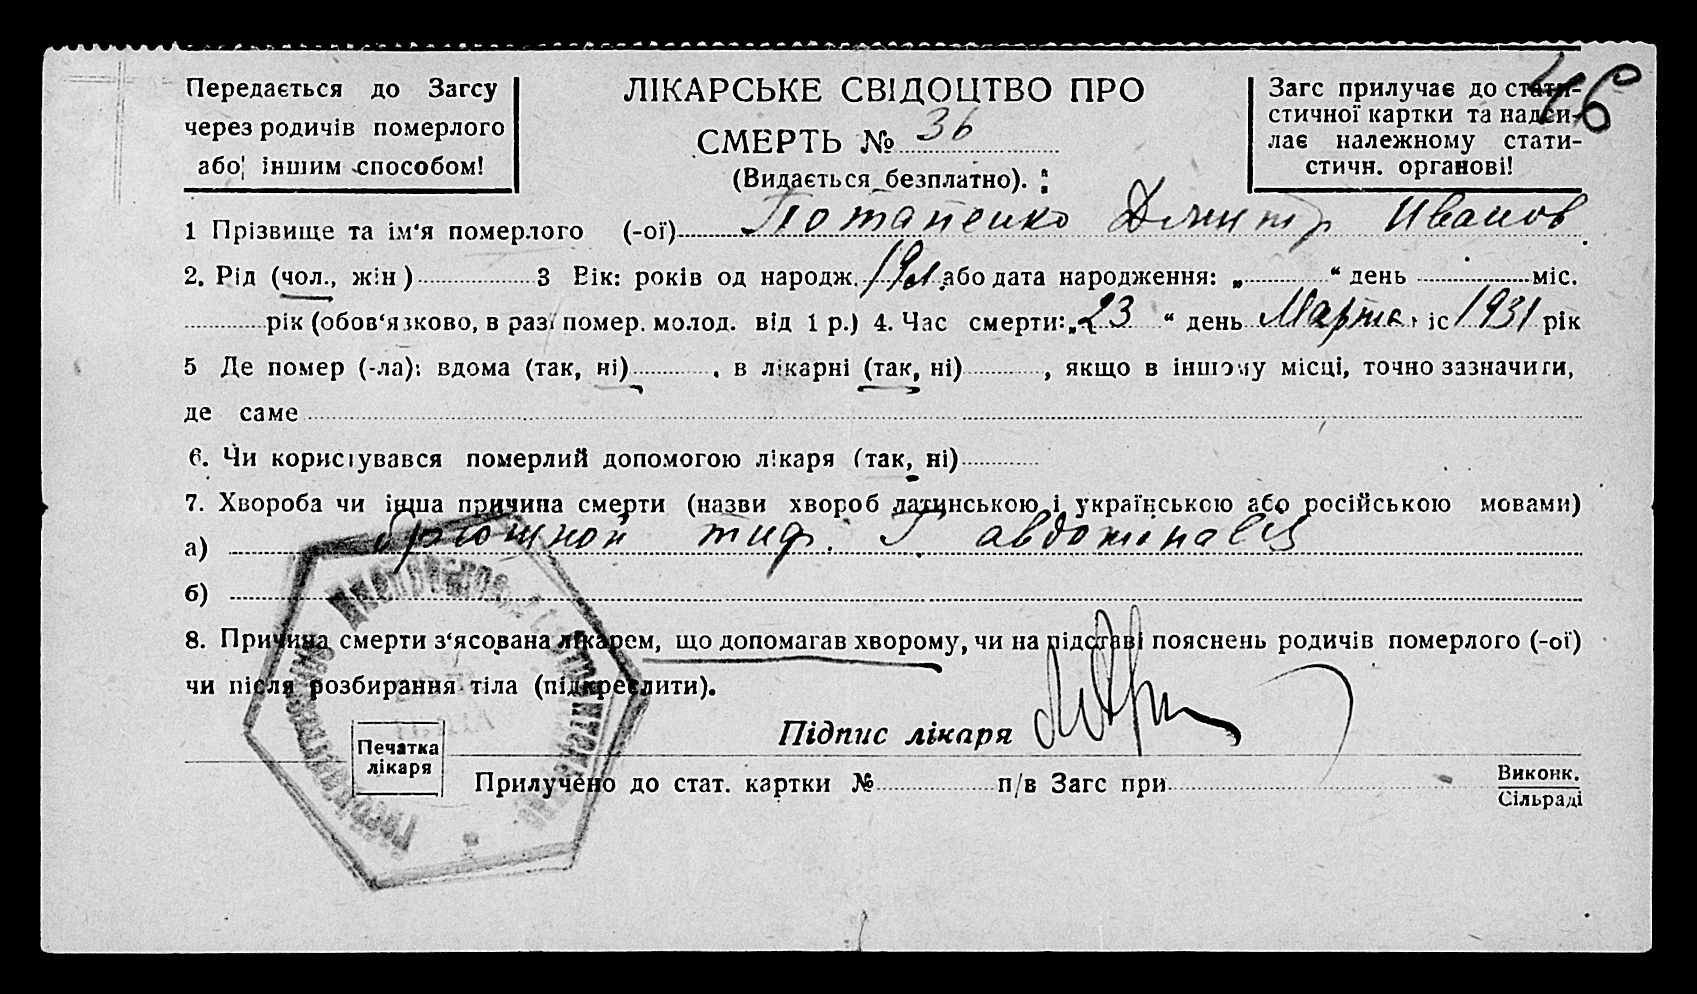 46
Передається до Загсу
через родичів померлого
або іншим способом!
ЛІКАРСЬКЕ СВІДОЦТВО ПРО
СМЕРТЬ № 36
(Видається безплатно).
Загс прилучає до стати-
стичної картки та надси-
лає належному стати-
стичн. органові!
1 Прізвище та ім'я померлого (-ої) Потапенко Дмитр Иванов
2. Рід (чол., жін) 3 Вік: років од народж. 19 л. або дата народження: „ “ день міс.
рік (обов'язково, в разі помер. молод. від 1 р.) 4. Час смерти: „23“ день Марта іс 1931 рік
5 Де помер (-ла): вдома (так, ні) , в лікарні (так, ні) , якщо в іншому місці, точно зазначити,
де саме
6. Чи користувався померлий допомогою лікаря (так, ні)
7. Хвороба чи інша причина смерти (назви хвороб латинською і українською або російською мовами)
а) брюшной тиф. T.
б)
8. Причина смерти з'ясована лікарем, що допомагав хворому, чи на підставі пояснень родичів померлого (-ої)
чи після розбирання тіла (підкреслити).
Підпис лікаря
Печатка
лікаря
Прилучено до стат. картки № п/в Загс при
Виконк.
Сільраді